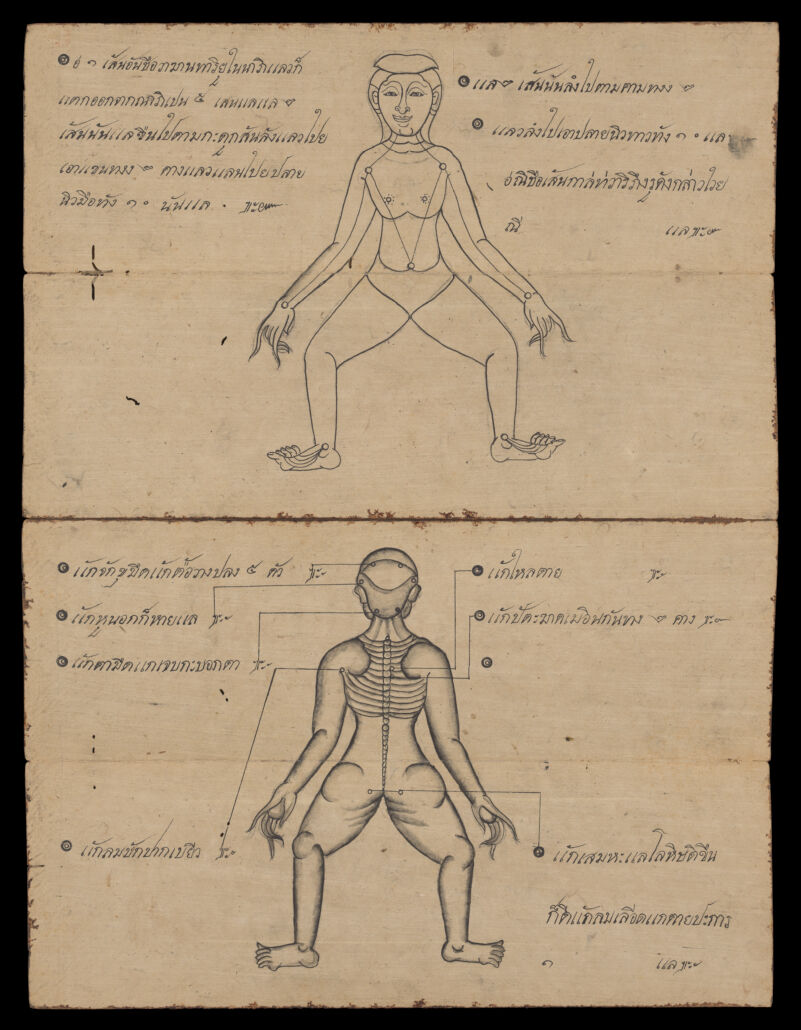 ๏ อ ๑ เส้นอันชือกาฆานทาริยูในนาภีแลวก็
แตกออกตากกนาภีเปน ๕ เสนแลแล ๒
เส้นนั้นแลขึนไปตามกะดูกสันลังแลวไปย
เอาแขนทงง ๒ คางแลวแลนไปยปลาย
นิวมือทัง ๑๐ นันแล ฯะ๛
๏ แล ๒ เส้นนันลงไปตามคาทงง ๒
๏ แลวลงไปเอาปลายนิวทาวทัง ๑๐ แล
ดังกล่าวไวย
ณี้ แล ฯะ๛
๏ แก้จักขุมืดแก้ ๕ ตัว ฯะ
๏ แก้หูนอกก็หายแล ฯะ
๏ แก้ตามืดแกเจบกะบอกตา ฯะ
๏ แก้ลมชักปากเบยีว ฯะ
๏ แก้ไหลตาย ฯะ
๏ แก้ปัตะฆาฅเมอินกันทาง ๒ คาง ฯะ
๏
๏ แก้เสมหะแลโลหิษติขึน
ก็ดีแก้ลมเลือดแกตายปะการ
๑ แล ฯะ